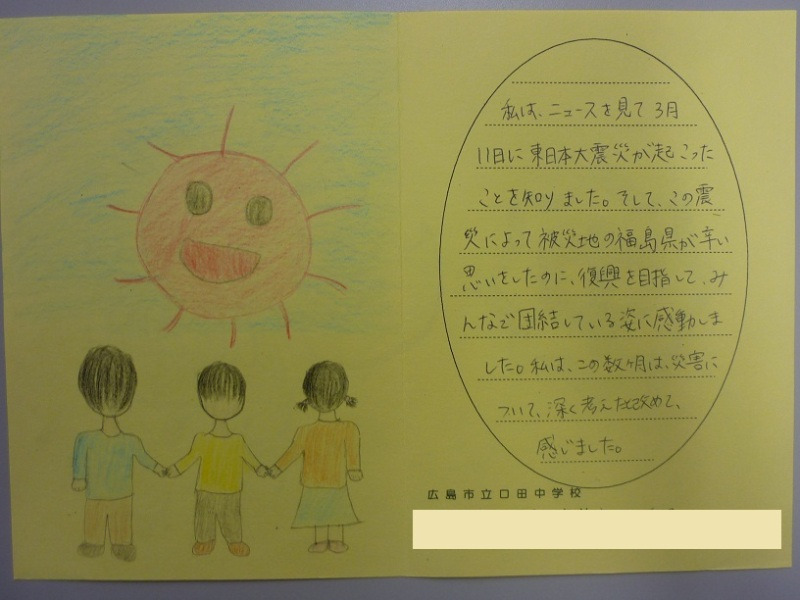 私は、ニュースを見て3月
11日に東日本大震災が起こった
ことを知りました。そして、この震
災によって被災地の福島県が辛い
思いをしたのに、復興を目指して、み
んなで団結している姿に感動しま
した。私は、この数ヶ月は、災害に
ついて、深く考えたと改めて、
感じました。
広島市立口田中学校